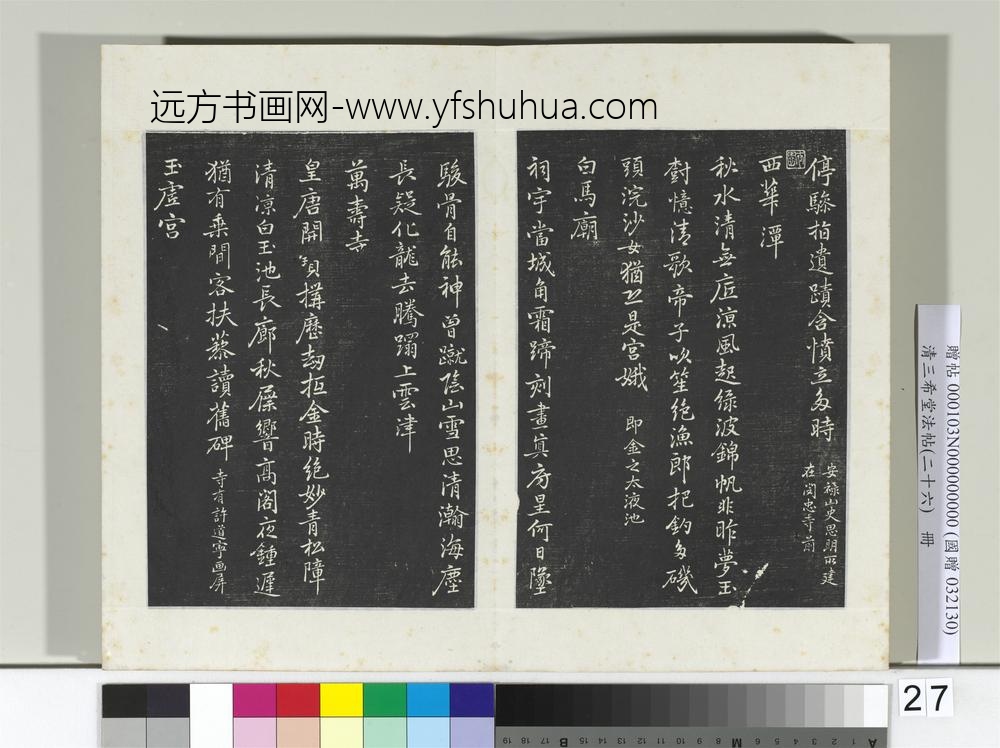 远方书画网-www.yfshuhua.com
停驂指遺蹟含憤立多時
安祿山史思明所建
在閔忠寺前
西華潭
秋水清無底涼風起綠波錦帆非昨夢玉
樹憶清歌帝子吹笙絕漁郎把釣多磯
頭浣沙女猶恐是宮娥 即金之太液池
白馬廟
祠宇當城角霜蹄刻畫真房星何日墜
駿骨自能神曾蹴陰山雪思清瀚海塵
長疑化龍去騰躡上雲津
萬壽寺
皇唐開寶構歷劫抵金時絕妙青松障
清涼白玉池長廊秋屧響高閣夜鍾遲
猶有乘閒客扶藜讀舊碑 寺有許道寧画屏
玉虛宮
贈帖 000103N000000000 (國贈 032130)
清三希堂法帖(二十六) 冊
27